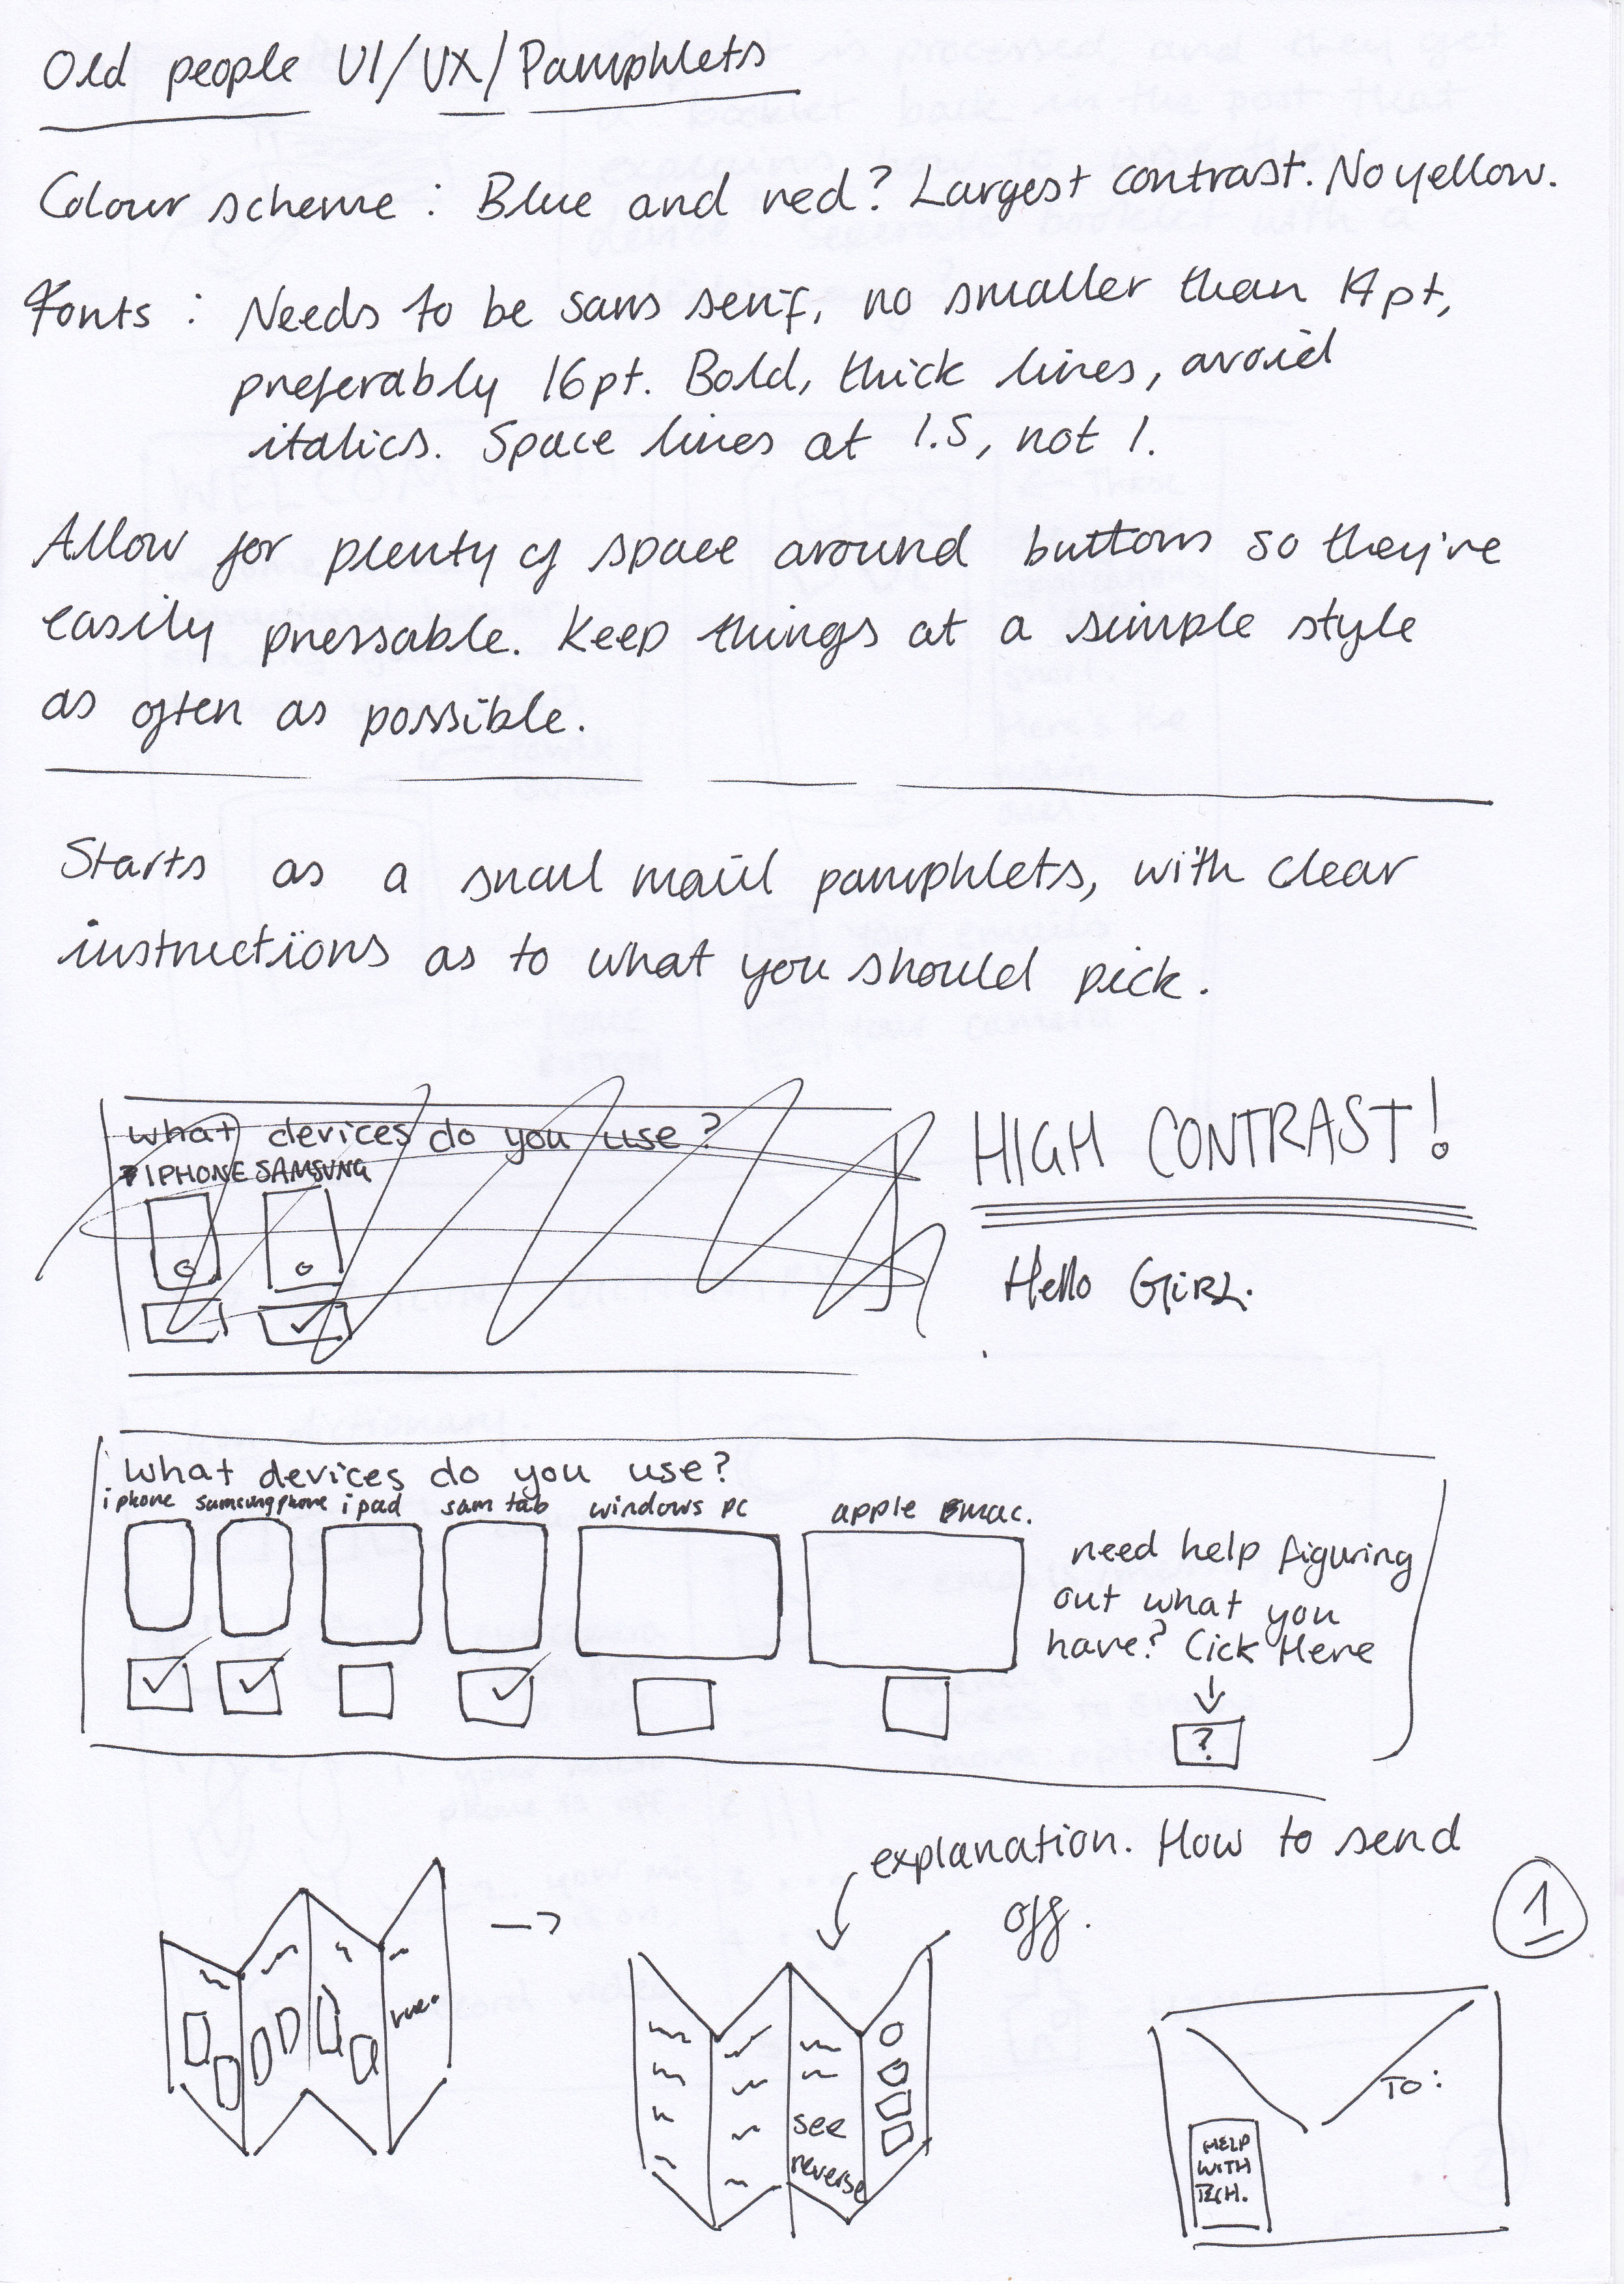 Old people UI/UX/Pamphlets
Colour scheme : Blue and red? Largest contrast. No yellow.
Fonts : Needs to be sans serif, no smaller than 14pt,
preferably 16pt. Bold, thick lines, avoid
italics. Space lines at 1.5, not 1.
Allow for plenty of space around buttons so they're
easily pressable. Keep things at a simple style
as often as possible.
Starts as a snail mail pamphlets, with clear
instructions as to what you should pick.
What devices do you use?
IPHONE SAMSUNG
HIGH CONTRAST!
Hello GiRL.
What devices do you use?
iphone samsung phone ipad sam tab windows pc apple mac.
need help figuring
out what you
have? Cick Here
?
explanation. How to send
off.
1
see
reverse
TO:
HELP
WITH
TECH.